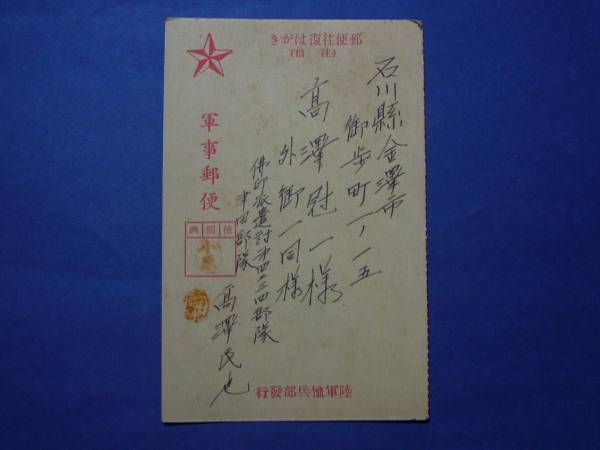 郵便往復はがき
(往信)
軍事郵便
檢閲濟
石川縣金澤市
御歩町一ノ一五
高澤慰一様
外御一同様
佛印派遣討第四二四部隊
津田部隊
高澤民也
陸軍恤兵部發行